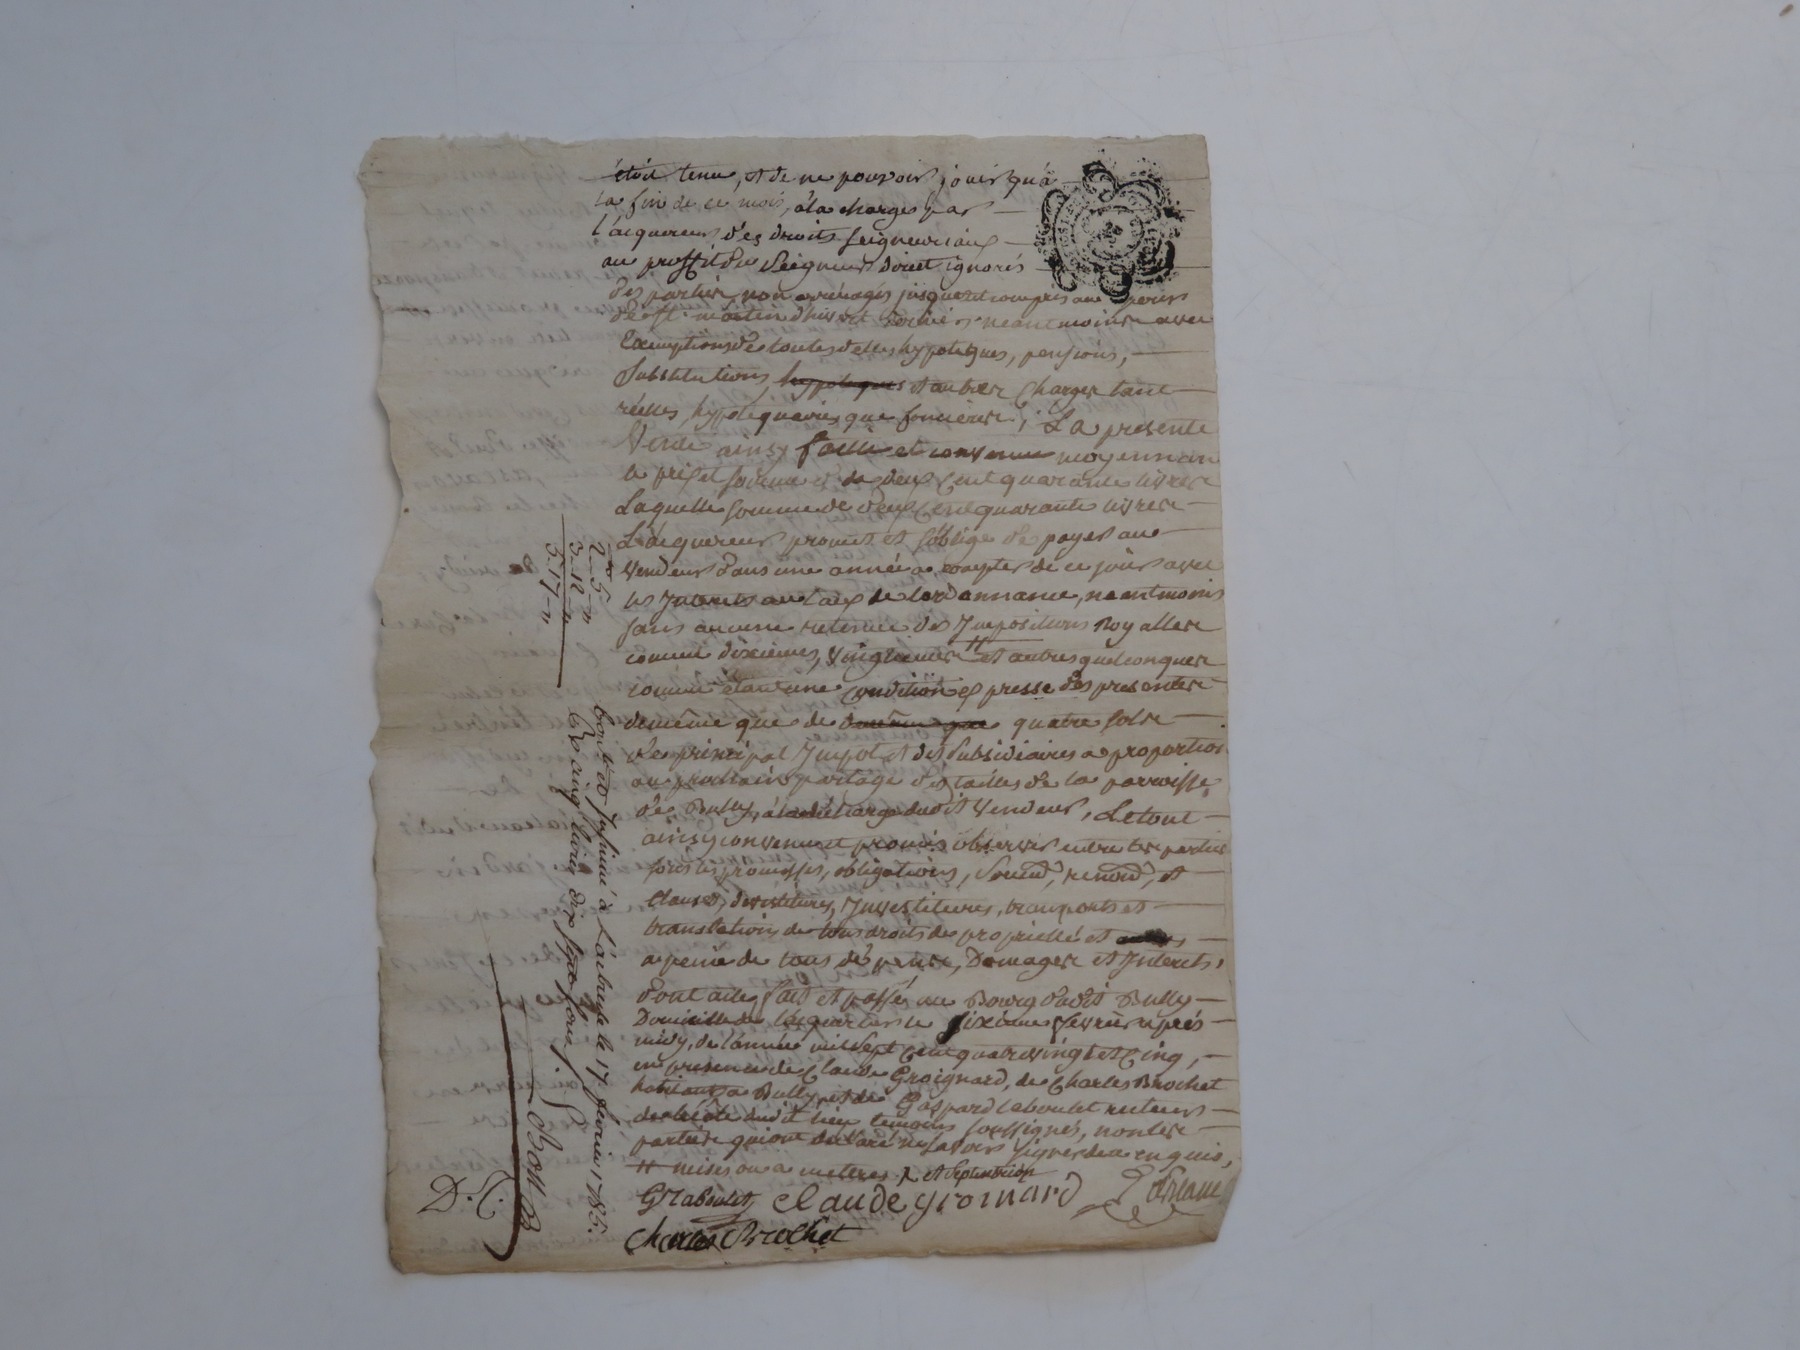 étoit tenu, et de ne pouvoir jouir qu'à
la fin de ce mois, à la charge par
l'acquereur des droits seigneuriaux
au proffit du Seigneur direct ignorés
des parties, non arréragés jusques et compris aux
de St. martin d'hivert dernier neantmoins avec
Exemptions de toutes dettes hypoteques, pensions,
substitutions, hypoteques et autres charges tant
réelles, hypotéquaires que foncieres; La presente
Vente ainsy faitte et convenue moyennant
le prix et somme de deux Cent quarante livres
Laquelle somme de deux Cent quarante livres
L'acquereur promet et s'oblige de payer au
vendeur dans une année a compter de ce jour avec
les Interets au taux de lordonnance, neantmoins
sans aucune retenue des Impositions Royalles
comme dixiemes, vingtiemes # et autres quelconques
comme étant une Condition expresse des presentes
demême que de demême que quatre sols
de principal Impot et des subsidiaires a proportion
au prochain partage des tailles de la parroisse
de Bully, à la décharge dudit vendeur, Le tout
ainsy convenu et promis observer entre les parties
sous les promesses, obligations, Soumd, renond, et
Clauses, devestitures, Investitures, transports et
translations de tous droits de proprietté et
a peine de tous dépens, Domages et Interets,
Dont acte, fait et passé au Bourg dudit Bully
Domicille de l'acquereur le sixieme fevrier après
midy, de l'année mil sept Cent quatrevingt et Cinq,
en presence de Claude Groignard, de Charles Brochet
habitants a Bully, et de Gaspard Laboulet recteur
de lécole dudit lieu temoins soussignés, non les
parties qui ont déclaré ne savoir signer de ce enquis,
# mises ou a mettres. et Septentrion
G Laboulet Claude gromard
Charles Brochet
2-5-"
3-12-"
5.17-"
Cont. et Insinué à L'arbresle le 17. fevrier 1785.
Rx cinq livres dix sept sous.
D. C.